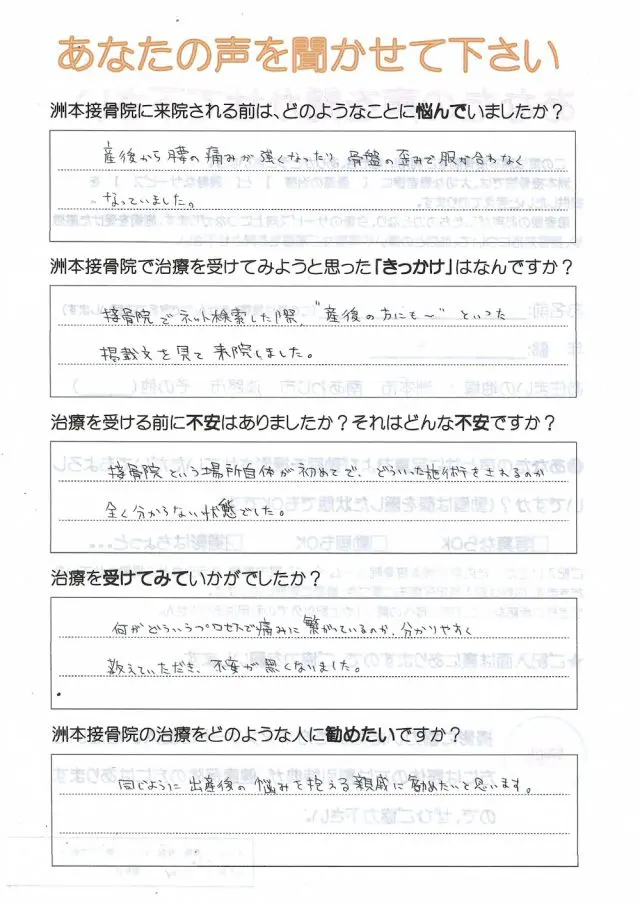 あなたの声を聞かせて下さい
洲本接骨院に来院される前は、どのようなことに悩んでいましたか？
産後から腰の痛みが強くなったり 骨盤の歪みで服が合わなく
なっていました。
洲本接骨院で治療を受けてみようと思った「きっかけ」はなんですか？
接骨院でネット検索した際、"産後の方にも〜" といった
掲載文を見て来院しました。
治療を受ける前に不安はありましたか？それはどんな不安ですか？
接骨院という場所自体が初めてで、どういった施術をされるのか
全く分からない状態でした。
治療を受けてみていかがでしたか？
何がどういうプロセスで痛みに繋がっているのか、分かりやすく
教えていただき、不安が無くないました。
洲本接骨院の治療をどのような人に勧めたいですか？
同じように出産後の悩みを抱える親戚に勧めたいと思います。